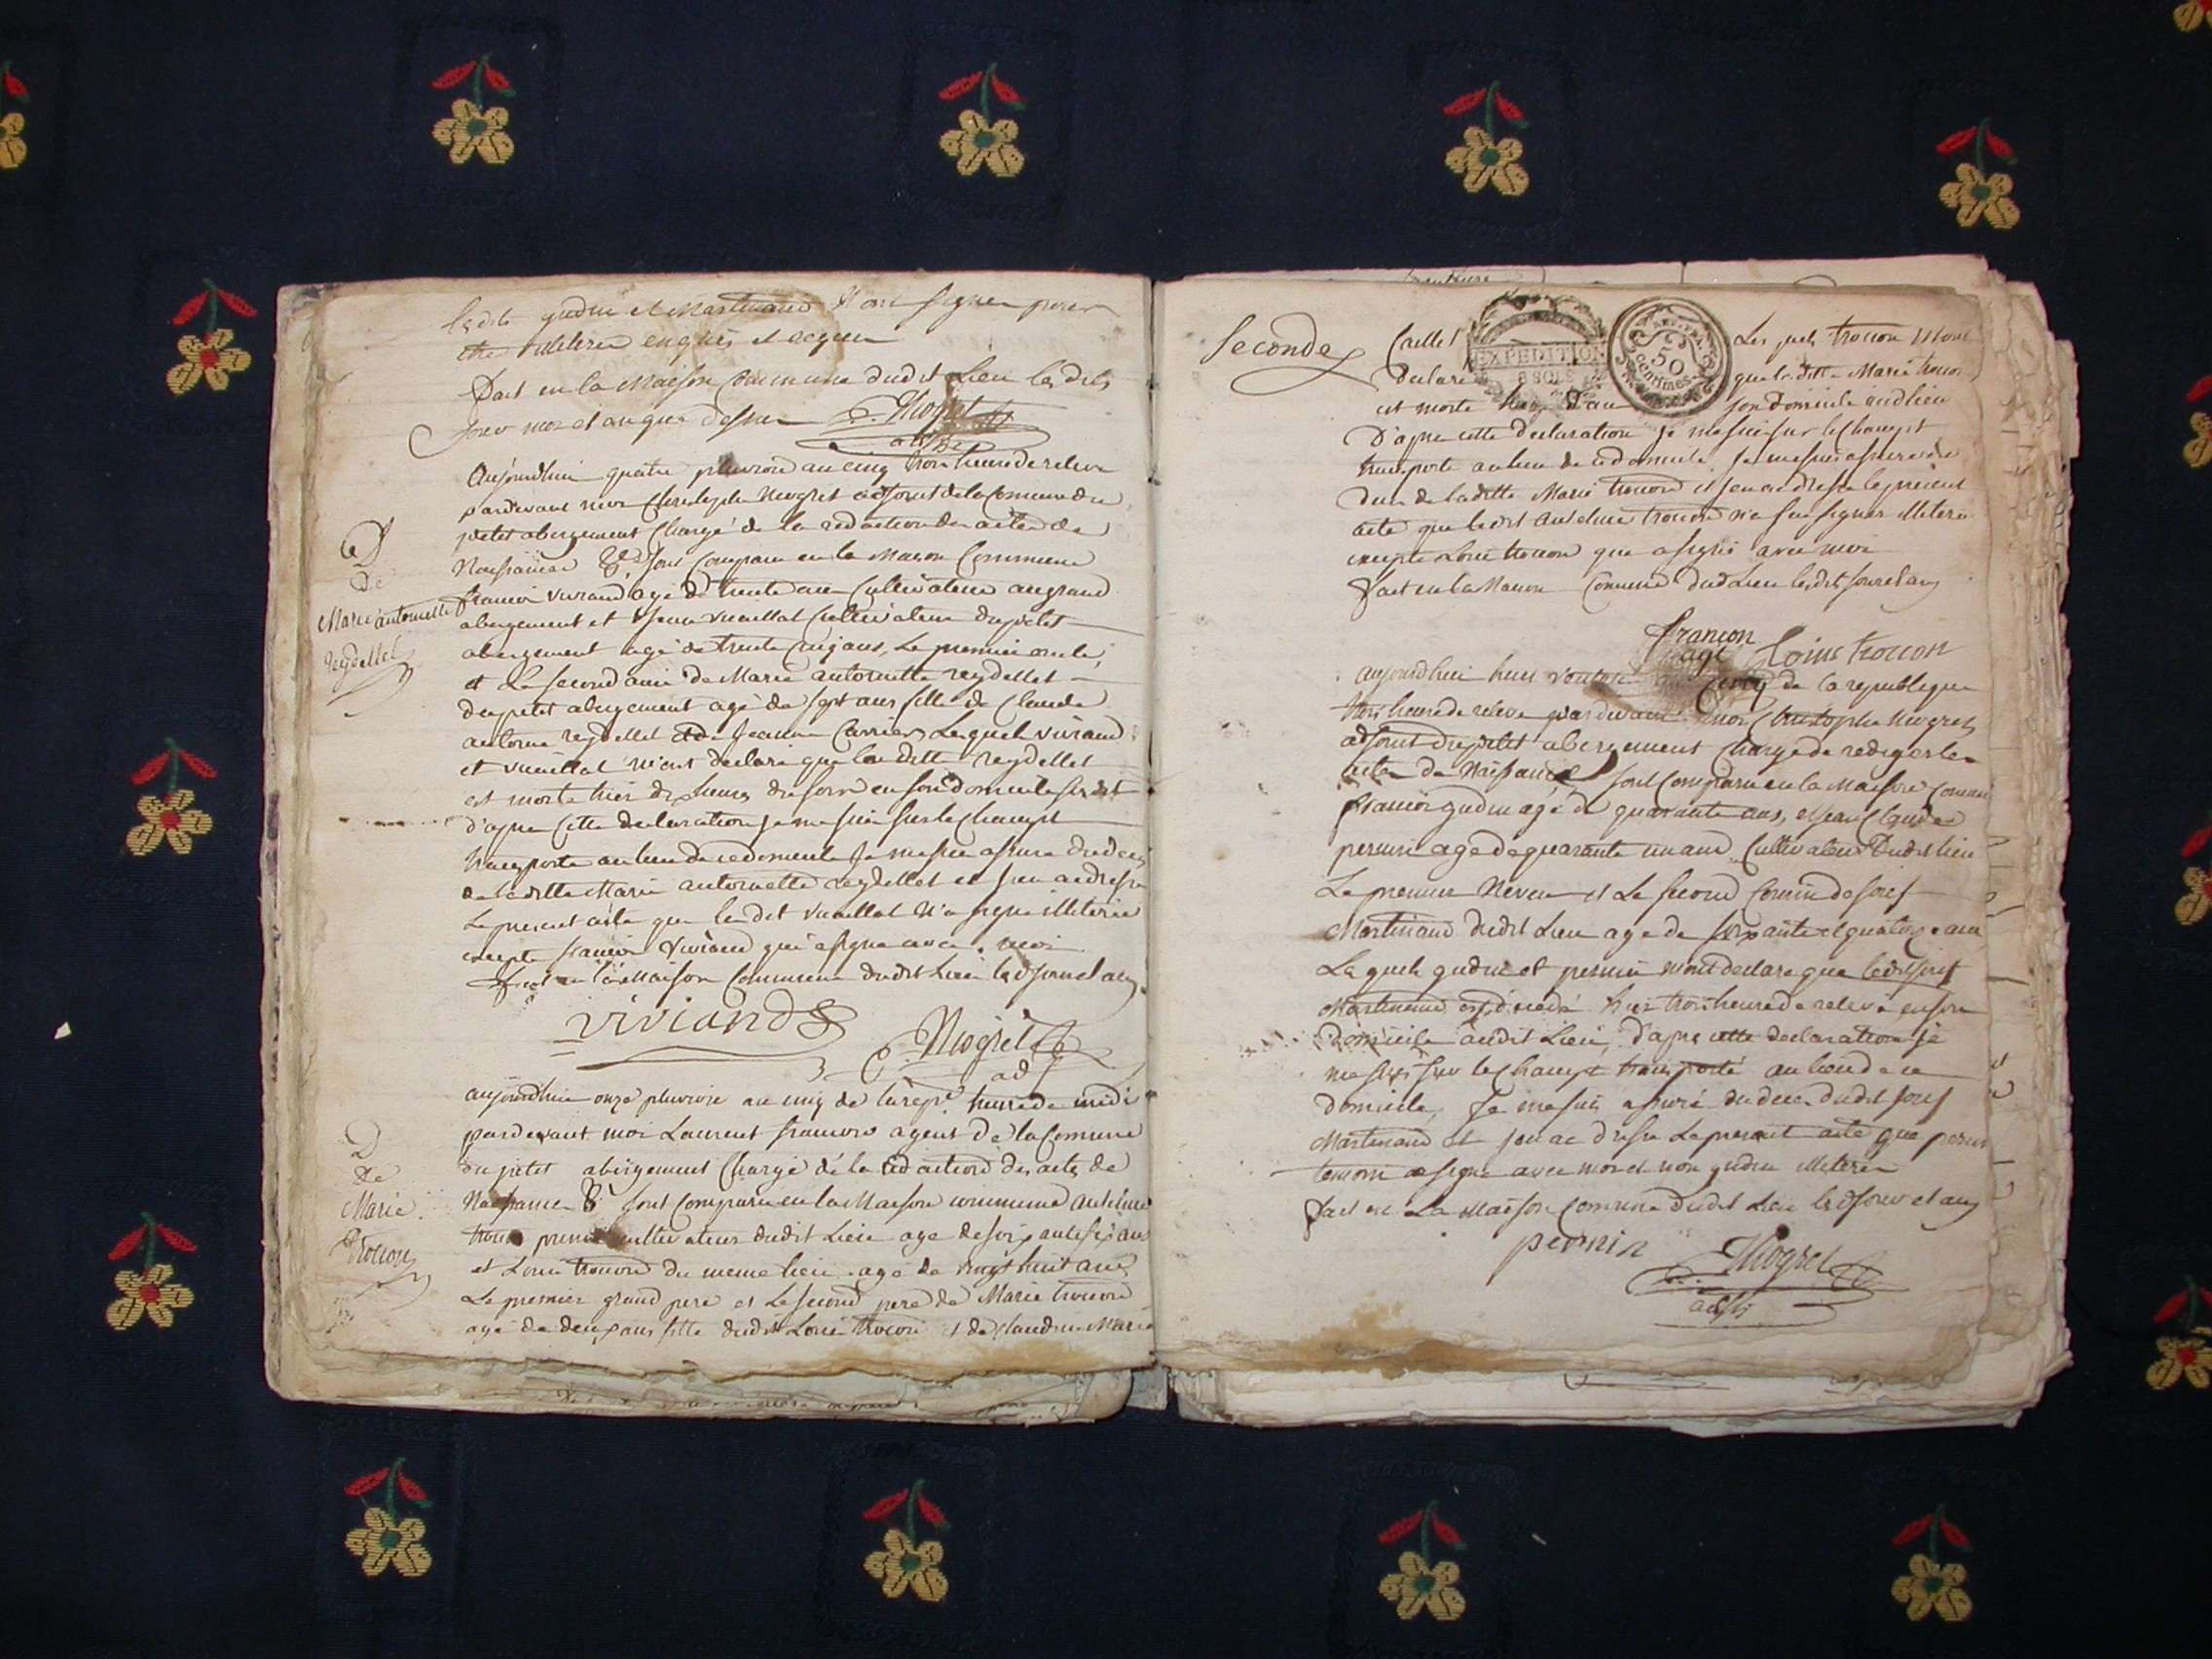 lesdits gudin et Martinand N'ont signer pour
être illeteré enquis et acquer
Fait en la Maison Commune dudit Lieu lesdits
jour mois et an que dessus C. Mogret
adjt
Aujourdhui quatre pluviose an cinq trois heure de releve
pardevant moi Christophe Mogret adjoint de la Comune du
petit abergement Chargé de la redaction des actes de
Naissance &c sont Comparu en la Maison Commune
francoi vivrand agé de trente ans Cultivateur au grand
abergement et Jean vuaillat Cultivateur du petit
abergement agé de trente cinq ans, Le premier oncle,
et Le second ami de Marie antoinette reydellet
du petit abergement agé de sept ans fille de Claude
antoine reydellet et de Jeanne Carrier Lesquels vivrand
et vuaillat m'ont declaré que la ditte reydellet
est morte hier dix heures du soir en son domicile sisdit
d'apres cette declaration je me suis sur le champt
transporte au lieu de ce domicile Je me suis assure du deces
de laditte Marie antoinette reydellet et j'en ai dressé
Le present acte que ledit vuaillat N'a signé illeterée
excepte francoi vivrand qui a signe avec moi
Fait en la Maison Commune dudit Lieu lesd jour et an
viviand
C. Mogret
ad
D
De
Marie antoinette
reydellet
aujourdhui onze pluviose an cinq de la rep heure de midi
pardevant moi Laurent francon agent de la Comune
du petit abergement Chargé de la redaction des actes de
Naissance & sont Comparu en la Maison commune antelme
trocon premier cultivateur dudit Lieu age de soixante six ans
et Louis trocon du meme lieu agé de vingt huit ans
Le premier grand pere et Le second pere de Marie trocon
agé de deux ans fille dudit Louis trocon et de Claudine Marie
D
de
Marie
Trocon
Seconde
Caillet Les quels trocon m'ont
declaré que laditte Marie trocon
est morte hier son domicile audlieu
D'apres cette declaration je me suis sur le Champt
transporte au lieu de ce domicile Je me suis assuré du
deces de laditte Marie trocon et j'en ai dressé le present
acte que ledit antelme trocon n'a seu signer illeteré
excepte Louis trocon que a signé avec moi
Fait en la Maison Commune dud Lieu lesdit jour et an
EXPEDITION
50
centimes
françon
agt
Loius trocon
aujourdhui huit ventose an cinq de la republique
trois heure de releve pardevant moi Christophe Mogret
adjoint du petit abergement Chargé de rediger les
actes de Naissance sont Comparu en la Maison Comune
francoi gudin agé de quarante ans, et Jean Claude
pernin age de quarante un ans Cultivateur Dudit lieu
Le premier Neveu et Le second Cousin de josef
Martinand dudit Lieu age de soixante et quatorze ans
Lesquels gudin et pernin m'ont declaré que ledit josef
Martinand est décédé hier trois heure de relevé en son
Domicile audit Lieu, d'apres cette declaration je
me suis sur le Champt transporté au lieu de ce
domicile, Je me suis assuré du deces dudit josef
Martinand et j'en ai dressé Le present acte que pernin
temoin a signe avec moi et non gudin illeteré
Fait en La Maison Comune Dudit Lieu lesd jour et an
pernin Mogret
adjt